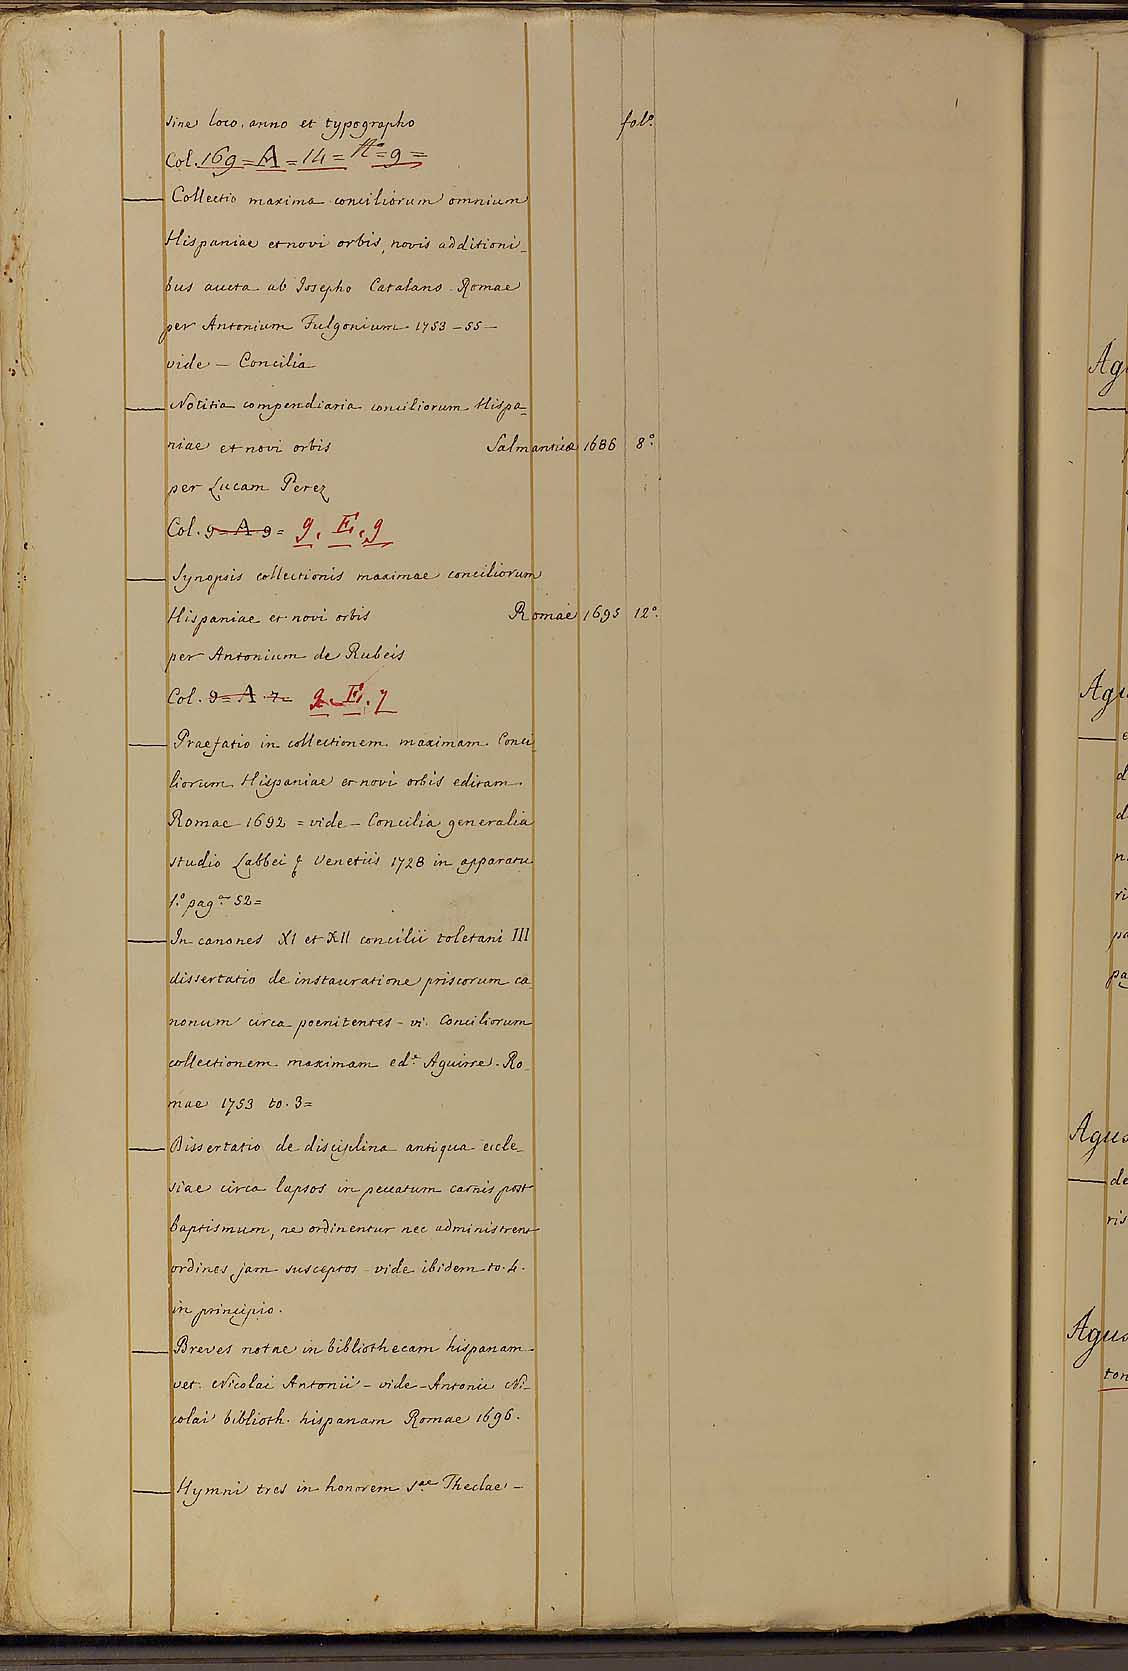 sine loco, anno et typographo fol.º
Col. 169 = A = 14 = Nº = 9 =
— Collectio maxima conciliorum omnium
Hispaniae et novi orbis, novis additioni-
bus aucta ab Josepho Catalano Romae
per Antonium Fulgonium 1753 - 55 -
vide - Concilia
— Notitia compendiaria conciliorum Hispa-
niae et novi orbis Salmanticae 1686 8º.
per Lucam Perez
Col. 9 = A 9 = 9. E. 9
— Synopsis collectionis maximae conciliorum
Hispaniae et novi orbis Romae 1695 12º.
per Antonium de Rubeis
Col. 9 = A 7 = 9. E. 7
— Praefatio in collectionem maximam Conci-
liorum Hispaniae et novi orbis editam
Romae 1692 = vide - Concilia generalia
studio Labbei & Venetiis 1728 in apparatu
1.º pag.ª 52 =
— In canones XI et XII concilii toletani III
dissertatio de instauratione priscorum ca-
nonum circa poenitentes - vi. Conciliorum
collectionem maximam ed.ª Aguirre. Ro-
mae 1753 to. 3 =
— Dissertatio de disciplina antiqua eccle-
siae circa lapsos in peccatum carnis post
baptismum, ne ordinentur nec administrent
ordines jam susceptos - vide ibidem to. 4.
in principio.
— Breves notae in bibliothecam hispanam
vet. Nicolai Antonii - vide - Antonii Ni-
colai biblioth. hispanam Romae 1696.
— Hymni tres in honorem S.ae Theclae -
Agu
Agu
Agus
de
ris
Agus
ton